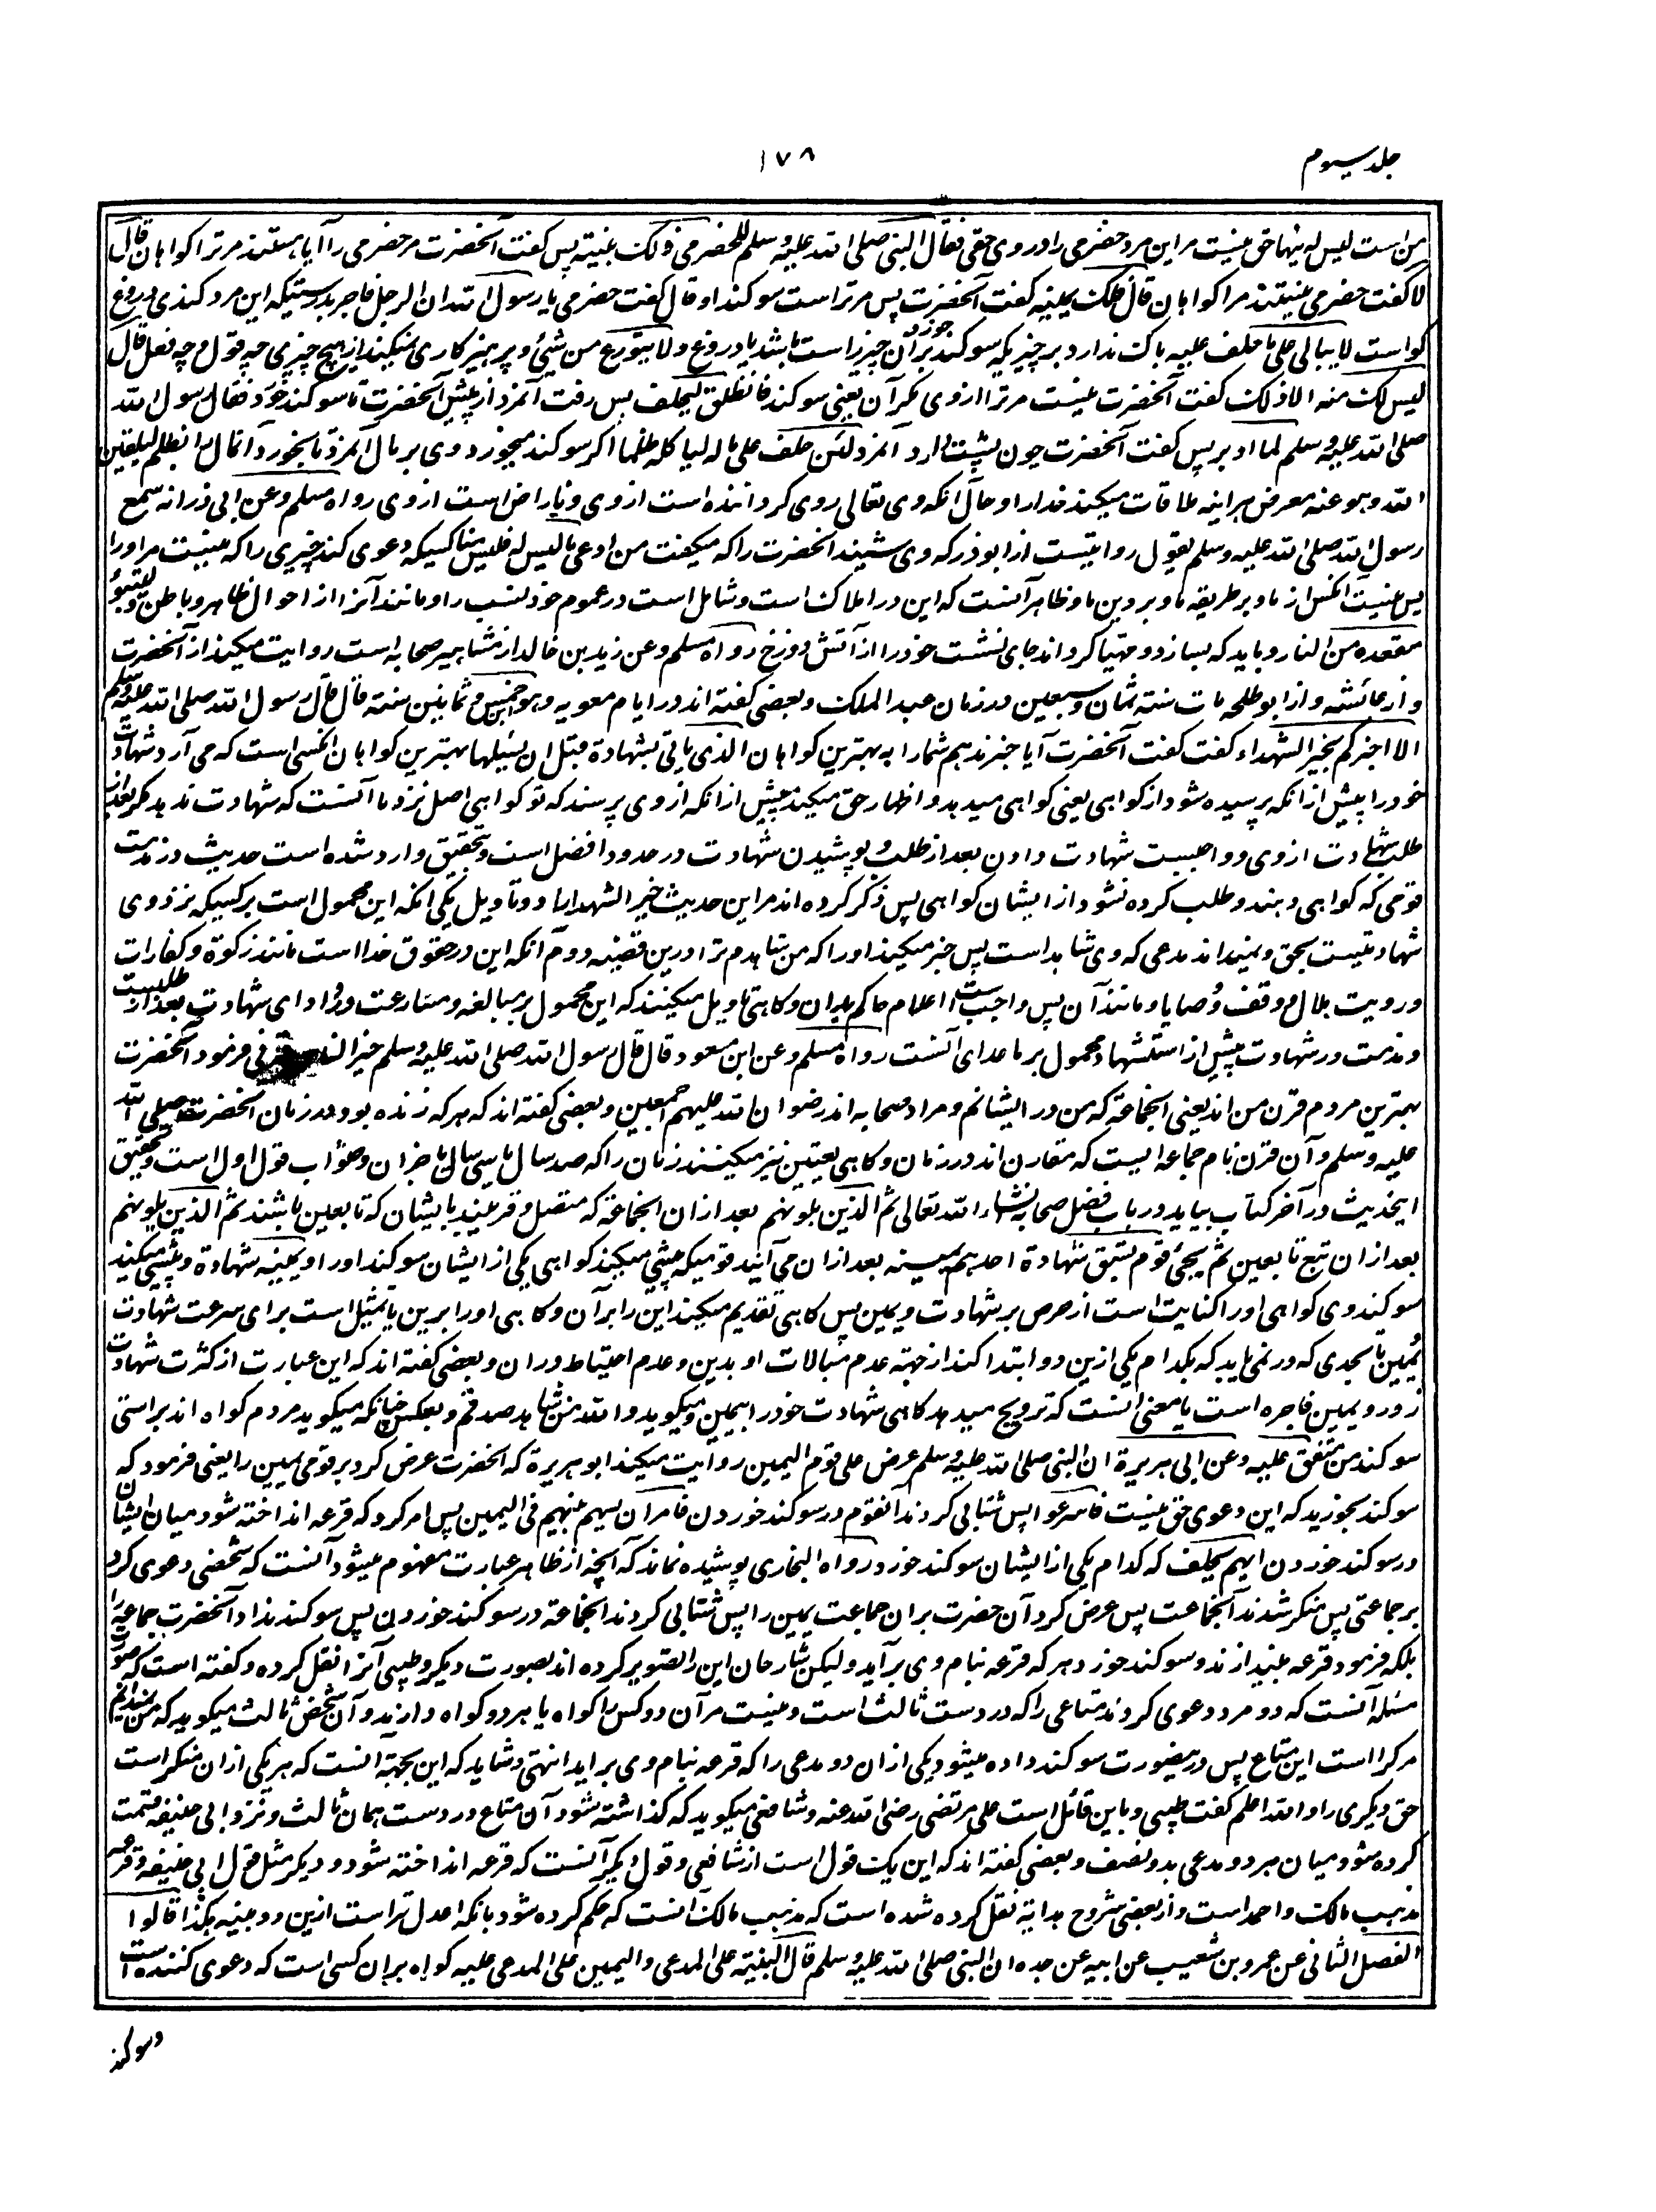 جلد سیوم
۱۷۸
من است لیس له فیها حق نیست مر این مرد حضرمی را در وی حقی فقال النبی صلی الله علیه وسلم للحضرمی ذلک بینة پس گفت آنحضرت مر حضرمی را آیا هستند مر ترا گواهان قال
لا گفت حضرمی نیستند مرا گواهان قال فلک یمینه گفت آنحضرت پس مر تراست سوگند او قال گفت حضرمی یا رسول الله ان الرجل فاجر بدرستیکه این مرد کندی دروغ
گو است لا یبالی علی ما حلف علیه باک ندارد بر چیزیکه سوگند خورد بر آن چیز راست باشد یا دروغ ولا یتورع من شیٔ و پرهیزگاری نمیکند از هیچ چیزی چه قول و چه فعل قال
لیس لک منه الا ذلک گفت آنحضرت نیست مر ترا از وی مگر آن یعنی سوگند فانطلق لیحلف پس رفت آنمرد از پیش آنحضرت تا سوگند خورد فقال رسول الله
صلی الله علیه وسلم لما ادبر پس گفت آنحضرت چون پشت داد آنمرد لئن حلف علی ماله لیاکله ظلما اگر سوگند میخورد وی بر مال آنمرد تا بخورد آنمال را بظلم لیلقین
الله وهو عنه معرض هر اینه ملاقات میکند خدا را و حال آنکه وی تعالی روی گرداننده است از وی و ناراض است از وی رواه مسلم وعن ابی ذر انه سمع
رسول الله صلی الله علیه وسلم یقول روایتست از ابوذر که وی شنید آنحضرت را که میگفت من ادعی ما لیس له فلیس منا کسیکه دعوی کند چیزی را که نیست مر او را
پس نیست آنکس از ما و بر طریقه ما و بر دین ما و ظاهر آنست که این در املاک است و شامل است در عموم خود نسب را و مانند آنرا از احوال ظاهر و باطن ولیتبوأ
مقعده من النار و باید که بسازد و مهیا گرداند جای نشست خود را از آتش دوزخ رواه مسلم وعن زید بن خالد از مشاهیر صحابه است روایت میکند از آنحضرت
و از عائشه و از ابوطلحه مات سنة ثمان وسبعین در زمان عبد الملک و بعضی گفته اند در ایام معویه وهو خمس وثمانین سنة قال قال رسول الله صلی الله علیه وسلم
الا اخبرکم بخیر الشهداء گفت گفت آنحضرت آیا خبر ندهم شما را به بهترین گواهان الذی یاتی بشهادة قبل ان یسئلها بهترین گواهان آنکسی است که می آرد شهادت
خود را پیش از انکه پرسیده شود از گواهی یعنی گواهی میدهد و اظهار حق میکند پیش از انکه از وی پرسند که تو گواهی اصل نزد ما آنست که شهادت ندهد مگر بعد از
طلب شهادت از وی و واجبست شهادت دادن بعد از طلب و پوشیدن شهادت در حدود افضل است و بتحقیق وارد شده است حدیث در مذمت
قومی که گواهی دهند و طلب کرده نشود از ایشان گواهی پس ذکر کرده اند مر این حدیث خیر الشهدا را دو تاویل یکی آنکه این محمول است بر کسیکه نزد وی
شهادتیست بحق و نمیداند مدعی که وی شاهد است پس خبر میکند او را که من شاهدم ترا درین قضیه دوم آنکه این در حقوق خدا است مانند زکوة و کفارات
و رویت هلال و وقف و وصایا و مانند آن پس واجب است اعلام حاکم بدان و گاهی تاویل میکنند که این محمول بر مبالغه و مسارعت در ادای شهادت بعد از طلبست
و مذمت در شهادت پیش از استشهاد محمول بر ماعدای آنست رواه مسلم وعن ابن مسعود قال قال رسول الله صلی الله علیه وسلم خیر الناس قرنی فرمود آنحضرت
بهترین مردم قرن من اند یعنی آنجماعة که من در ایشانم و مراد صحابه اند رضوان الله علیهم اجمعین و بعضی گفته اند که هر که زنده بود در زمان آنحضرت صلی الله
علیه وسلم و آن قرن نام جماعه ایست که مقارن اند در زمان و گاهی تعیین نیز میکنند زمان را که صد سال یا سی سال یا جز آن و صواب قول اول است و تحقیق
اینحدیث در آخر کتاب بیاید در باب فضل صحابه انشاء الله تعالی ثم الذین یلونهم بعد ازان آنجماعة که متصل و قریبند بایشان که تابعین باشند ثم الذین یلونهم
بعد ازان تبع تابعین ثم یجیٔ قوم تسبق شهادة احدهم یمینه بعد ازان می آیند قومیکه پیشی میکند گواهی یکی از ایشان سوگند او را و یمینه شهادة و پیشی میکند
سوگند وی گواهی او را کنایت است از حرص بر شهادت و یمین پس گاهی تقدیم میکند این را بر آن و گاهی او را برین یا تمثیل است برای سرعت شهادت
و یمین تا بحدی که در نمی یابد که بکدام یکی ازین دو ابتدا کند از جهة عدم مبالات او بدین و عدم احتیاط در ان و بعضی گفته اند که این عبارت از کثرت شهادت
زور و یمین فاجره است یا معنی آنست که ترویج میدهد گاهی شهادت خود را بیمین و میگوید والله من شاهد صدقم و بعکس چنانکه میگوید مردم گواه اند بر راستی
سوگند من متفق علیه وعن ابی هریرة ان النبی صلی الله علیه وسلم عرض علی قوم الیمین روایت میکند ابو هریرة که آنحضرت عرض کرد بر قومی یمین را یعنی فرمود که
سوگند بخورید که این دعوی حق نیست فاسرعوا پس شتابی کردند آنقوم در سوگند خوردن فامر ان یسهم بینهم فی الیمین پس امر کرد که قرعه انداخته شود میان ایشان
در سوگند خوردن ایهم یحلف که کدام یکی از ایشان سوگند خورد رواه البخاری پوشیده نماند که آنچه از ظاهر عبارت مفهوم میشود آنست که شخصی دعوی کرد
بر جماعتی پس منکر شدند آنجماعت پس عرض کرد آن حضرت بران جماعت یمین را پس شتابی کردند آنجماعة در سوگند خوردن پس سوگند نداد آنحضرت جماعه را
بلکه فرمود قرعه بیندازند و سوگند خورد هر که قرعه بنام وی برآید ولیکن شارحان این را تصویر کرده اند بصورت دیگر و طیبی آنرا نقل کرده و گفته است که صورت
مسئله آنست که دو مرد دعوی کردند متاعی را که در دست ثالث است و نیست مر آن دو کس را گواه یا هر دو گواه دارند و آن شخص ثالث میگوید که من نمیدانم
مر کرا است این متاع پس درینصورت سوگند داده میشود یکی ازان دو مدعی را که قرعه بنام وی براید انتهی و شاید که این بجهة آنست که هر یکی ازان منکر است
حق دیگری را والله اعلم گفت طیبی و باین قائل است علی مرتضی رضی الله عنه و شافعی میگوید که گذاشته شود آن متاع در دست همان ثالث و نزد ابی حنیفه قسمت
کرده شود میان هر دو مدعی بدو نصف و بعضی گفته اند که این یک قول است از شافعی و قول دیگر آنست که قرعه انداخته شود و دیگر مثل قول ابی حنیفه و قرعه
مذهب مالک و احمد است و از بعضی شروح هدایة نقل کرده شده است که مذهب مالک آنست که حکم کرده شود بانکه اعدل تر است ازین دو بینه هکذا قالوا
الفصل الثانی عن عمرو بن شعیب عن ابیه عن جده ان النبی صلی الله علیه وسلم قال البینة علی المدعی والیمین علی المدعی علیه گواه بران کسی است که دعوی کننده است
و سوگند